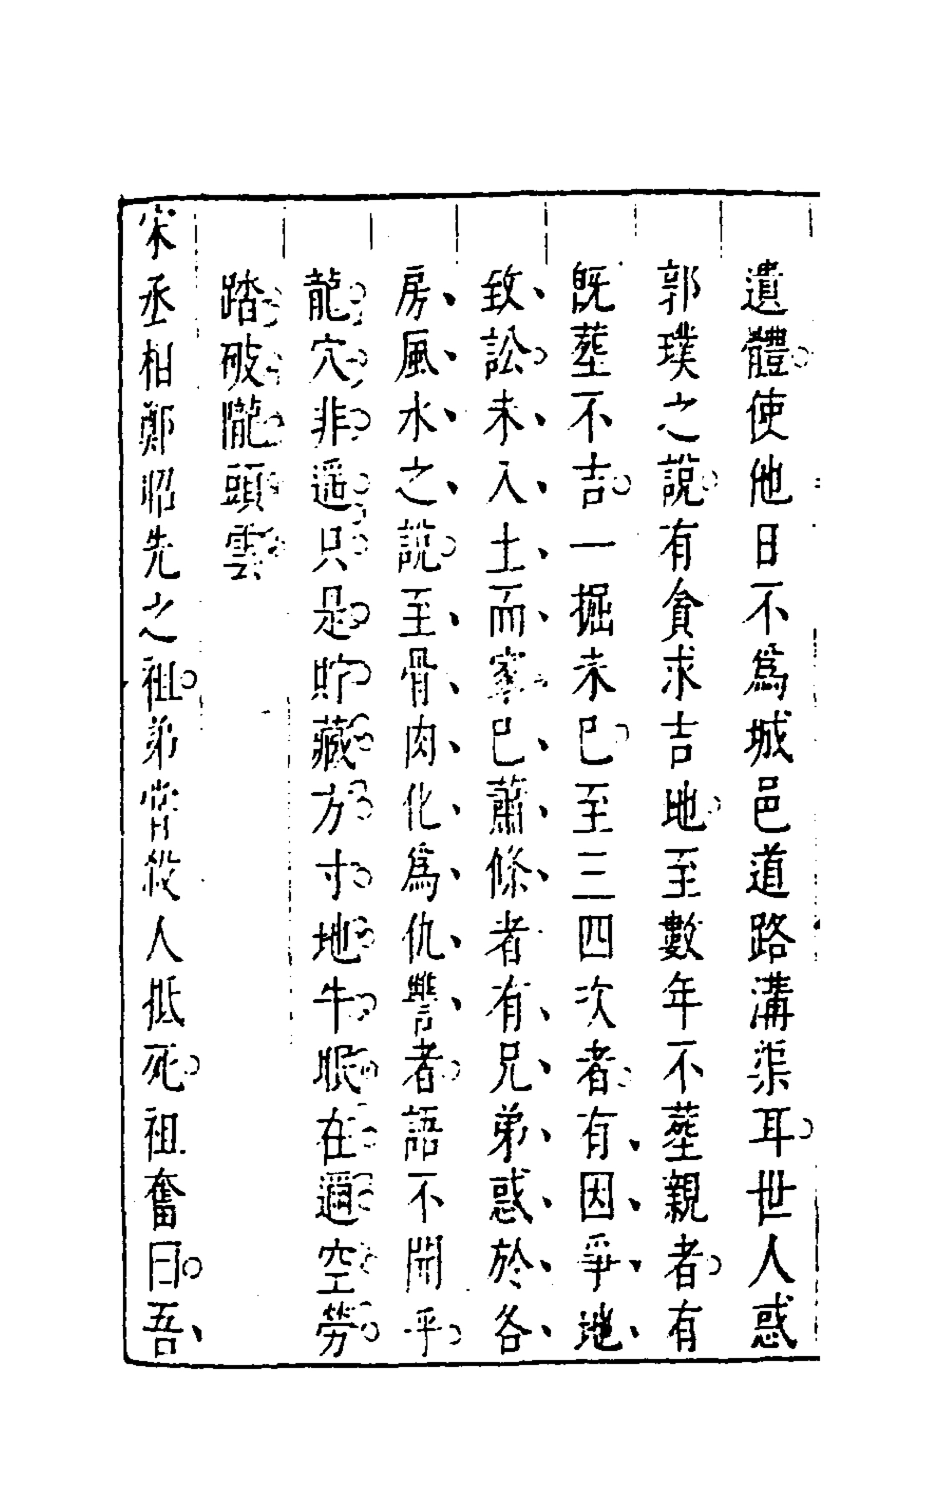 遺體使他日不爲城邑道路溝渠耳世人惑
郭璞之說有貪求吉地至數年不塟親者有
旣塟不吉一掘未巳至三四次者有因爭地
致訟未入土而家巳蕭條者有兄弟惑於各
房風水之說至骨肉化爲仇讐者語不聞乎
龍穴非遥只是貯藏方寸地牛眠在邇空勞
踏破隴頭雲
宋丞相鄭昭先之祖弟嘗殺人抵死祖奮曰吾